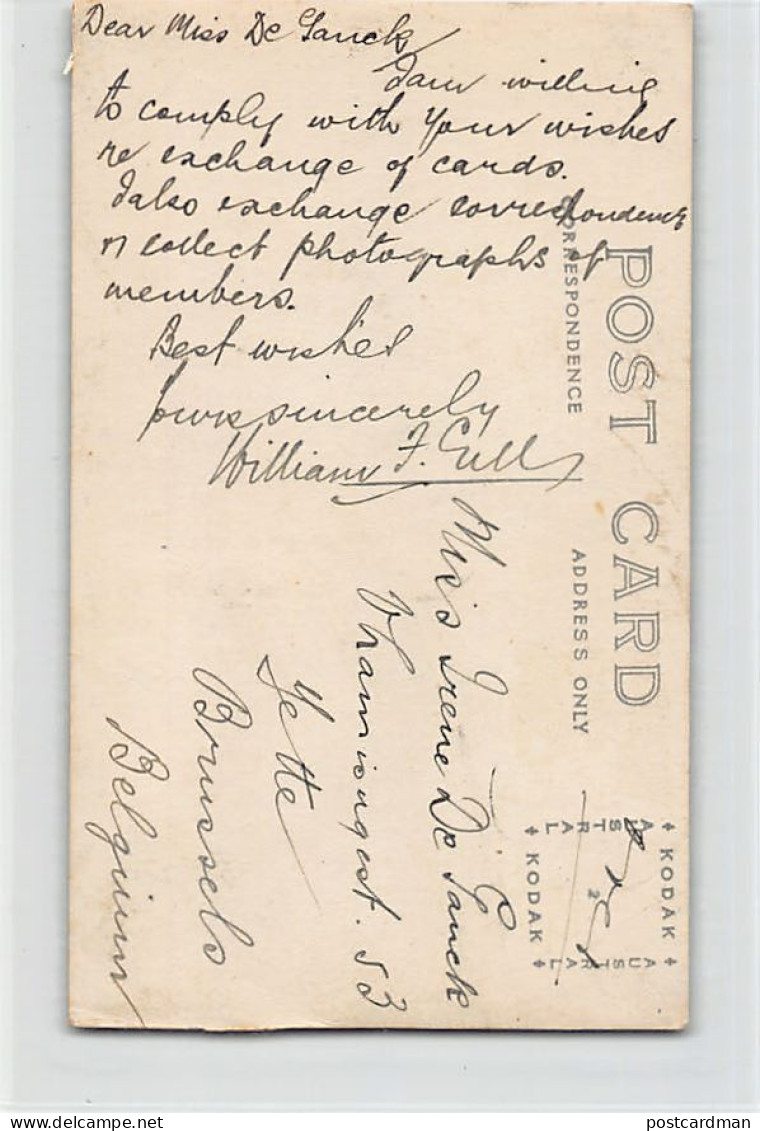 Dear Miss De Ganck
I am willing
to comply with your wishes
re exchange of cards.
I also exchange correspondence
n collect photographs of
members.
Best wishes
yours sincerely
William F.
POST CARD
CORRESPONDENCE
ADDRESS ONLY
KODAK
AUSTRAL
KODAK
AUSTRAL
Miss Irene De Ganck
53
Jette
Brussels
Belguim
postcardman